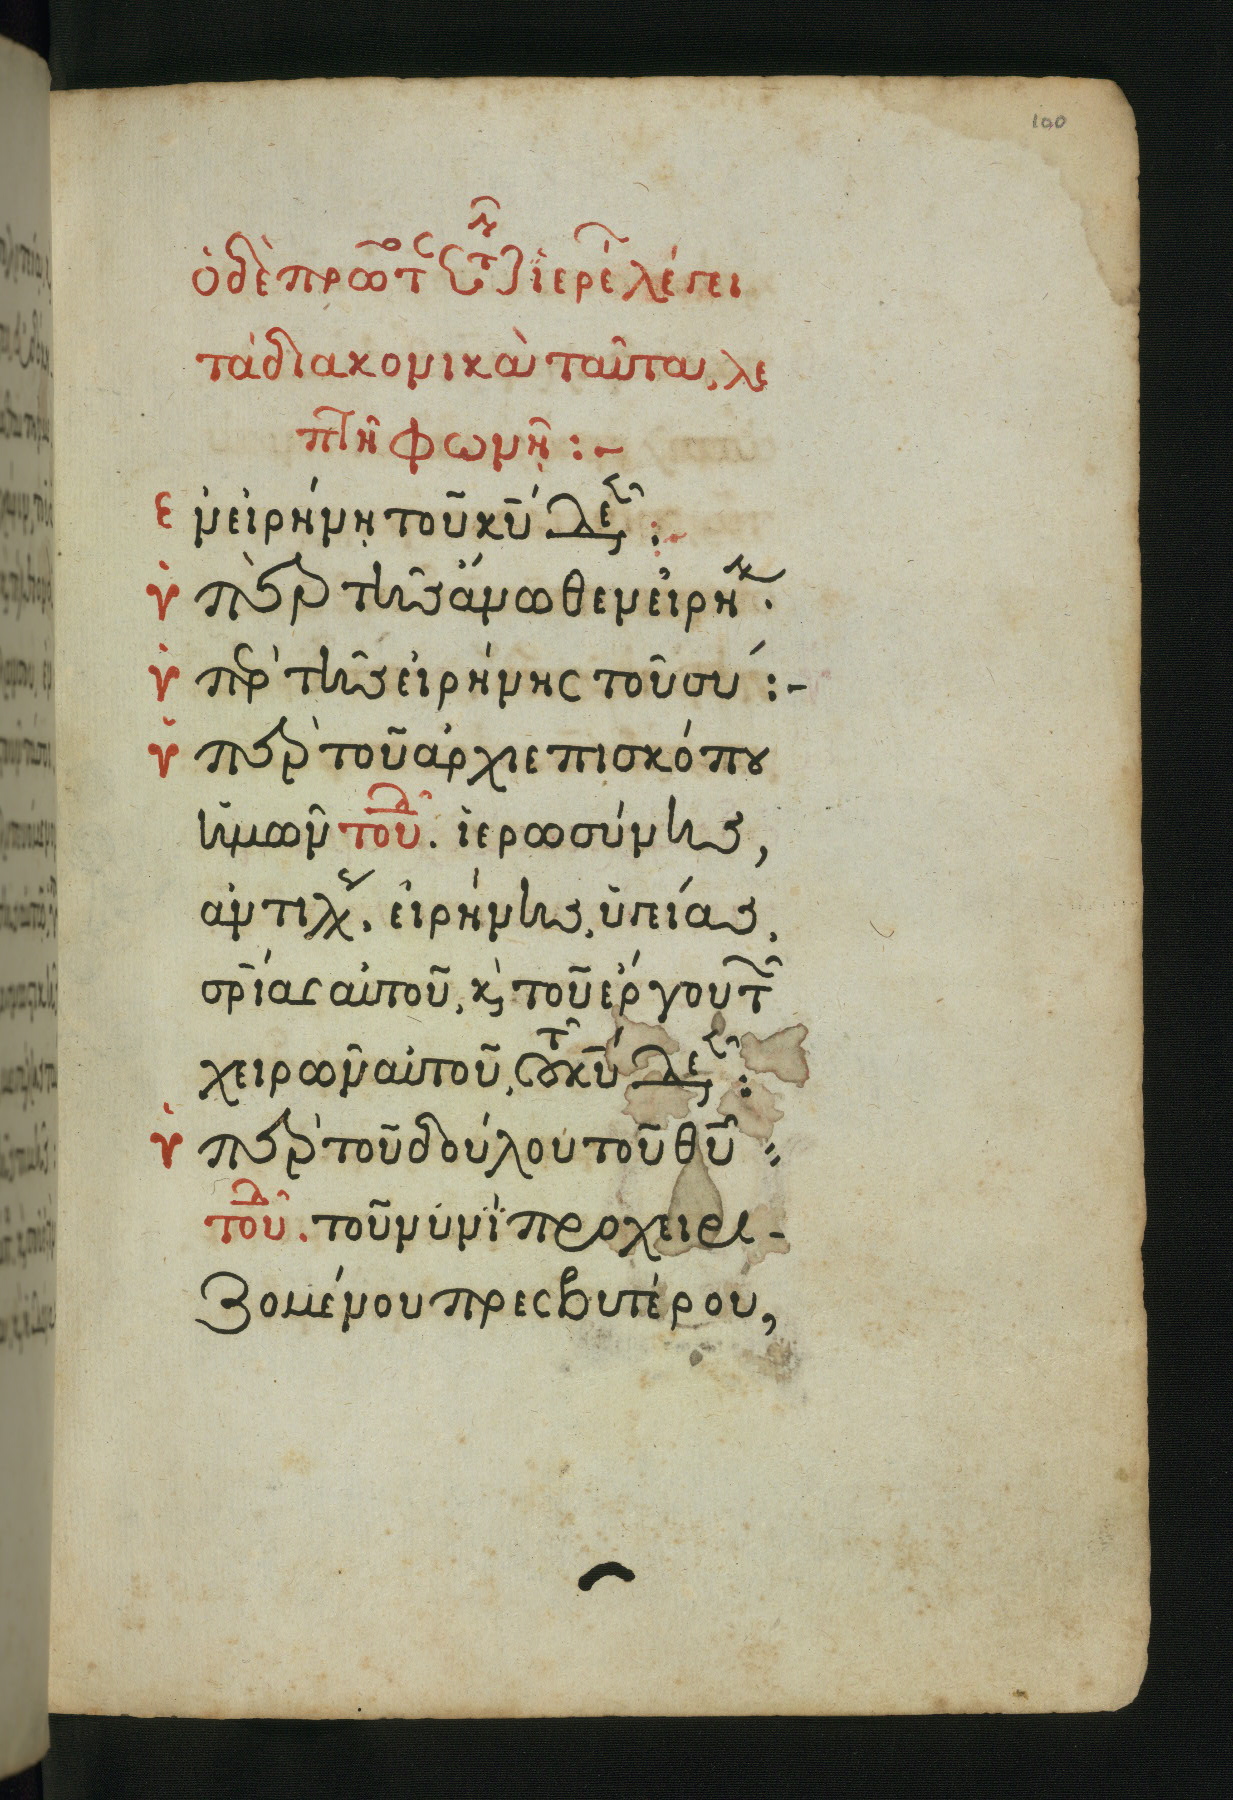 100
ὁ δὲ πρῶτ τ ἱερέ λέγει
τὰ διακονικὰ ταῦτα, λε
πτῆ φωνῆ :-
ἐν εἰρήνη τοῦ κυ :
ὑπὲρ τῆς ἄνωθεν εἰρήν.
ὑπὲρ τῆς εἰρήνης τοῦ συ :-
ὑπὲρ τοῦ ἀρχιεπισκόπου
ἡμῶν τοῦδ. ἱερωσύνης,
ἀντιλ. εἰρήνης, ὑγείας,
σρίας αὐτοῦ, κ τοῦ ἔργου τ
χειρῶν αὐτοῦ, τ κυ :
ὑπὲρ τοῦ δούλου τοῦ θυ
τοῦδ. τοῦ νυνὶ προχειρι-
ζομένου πρεσβυτέρου,